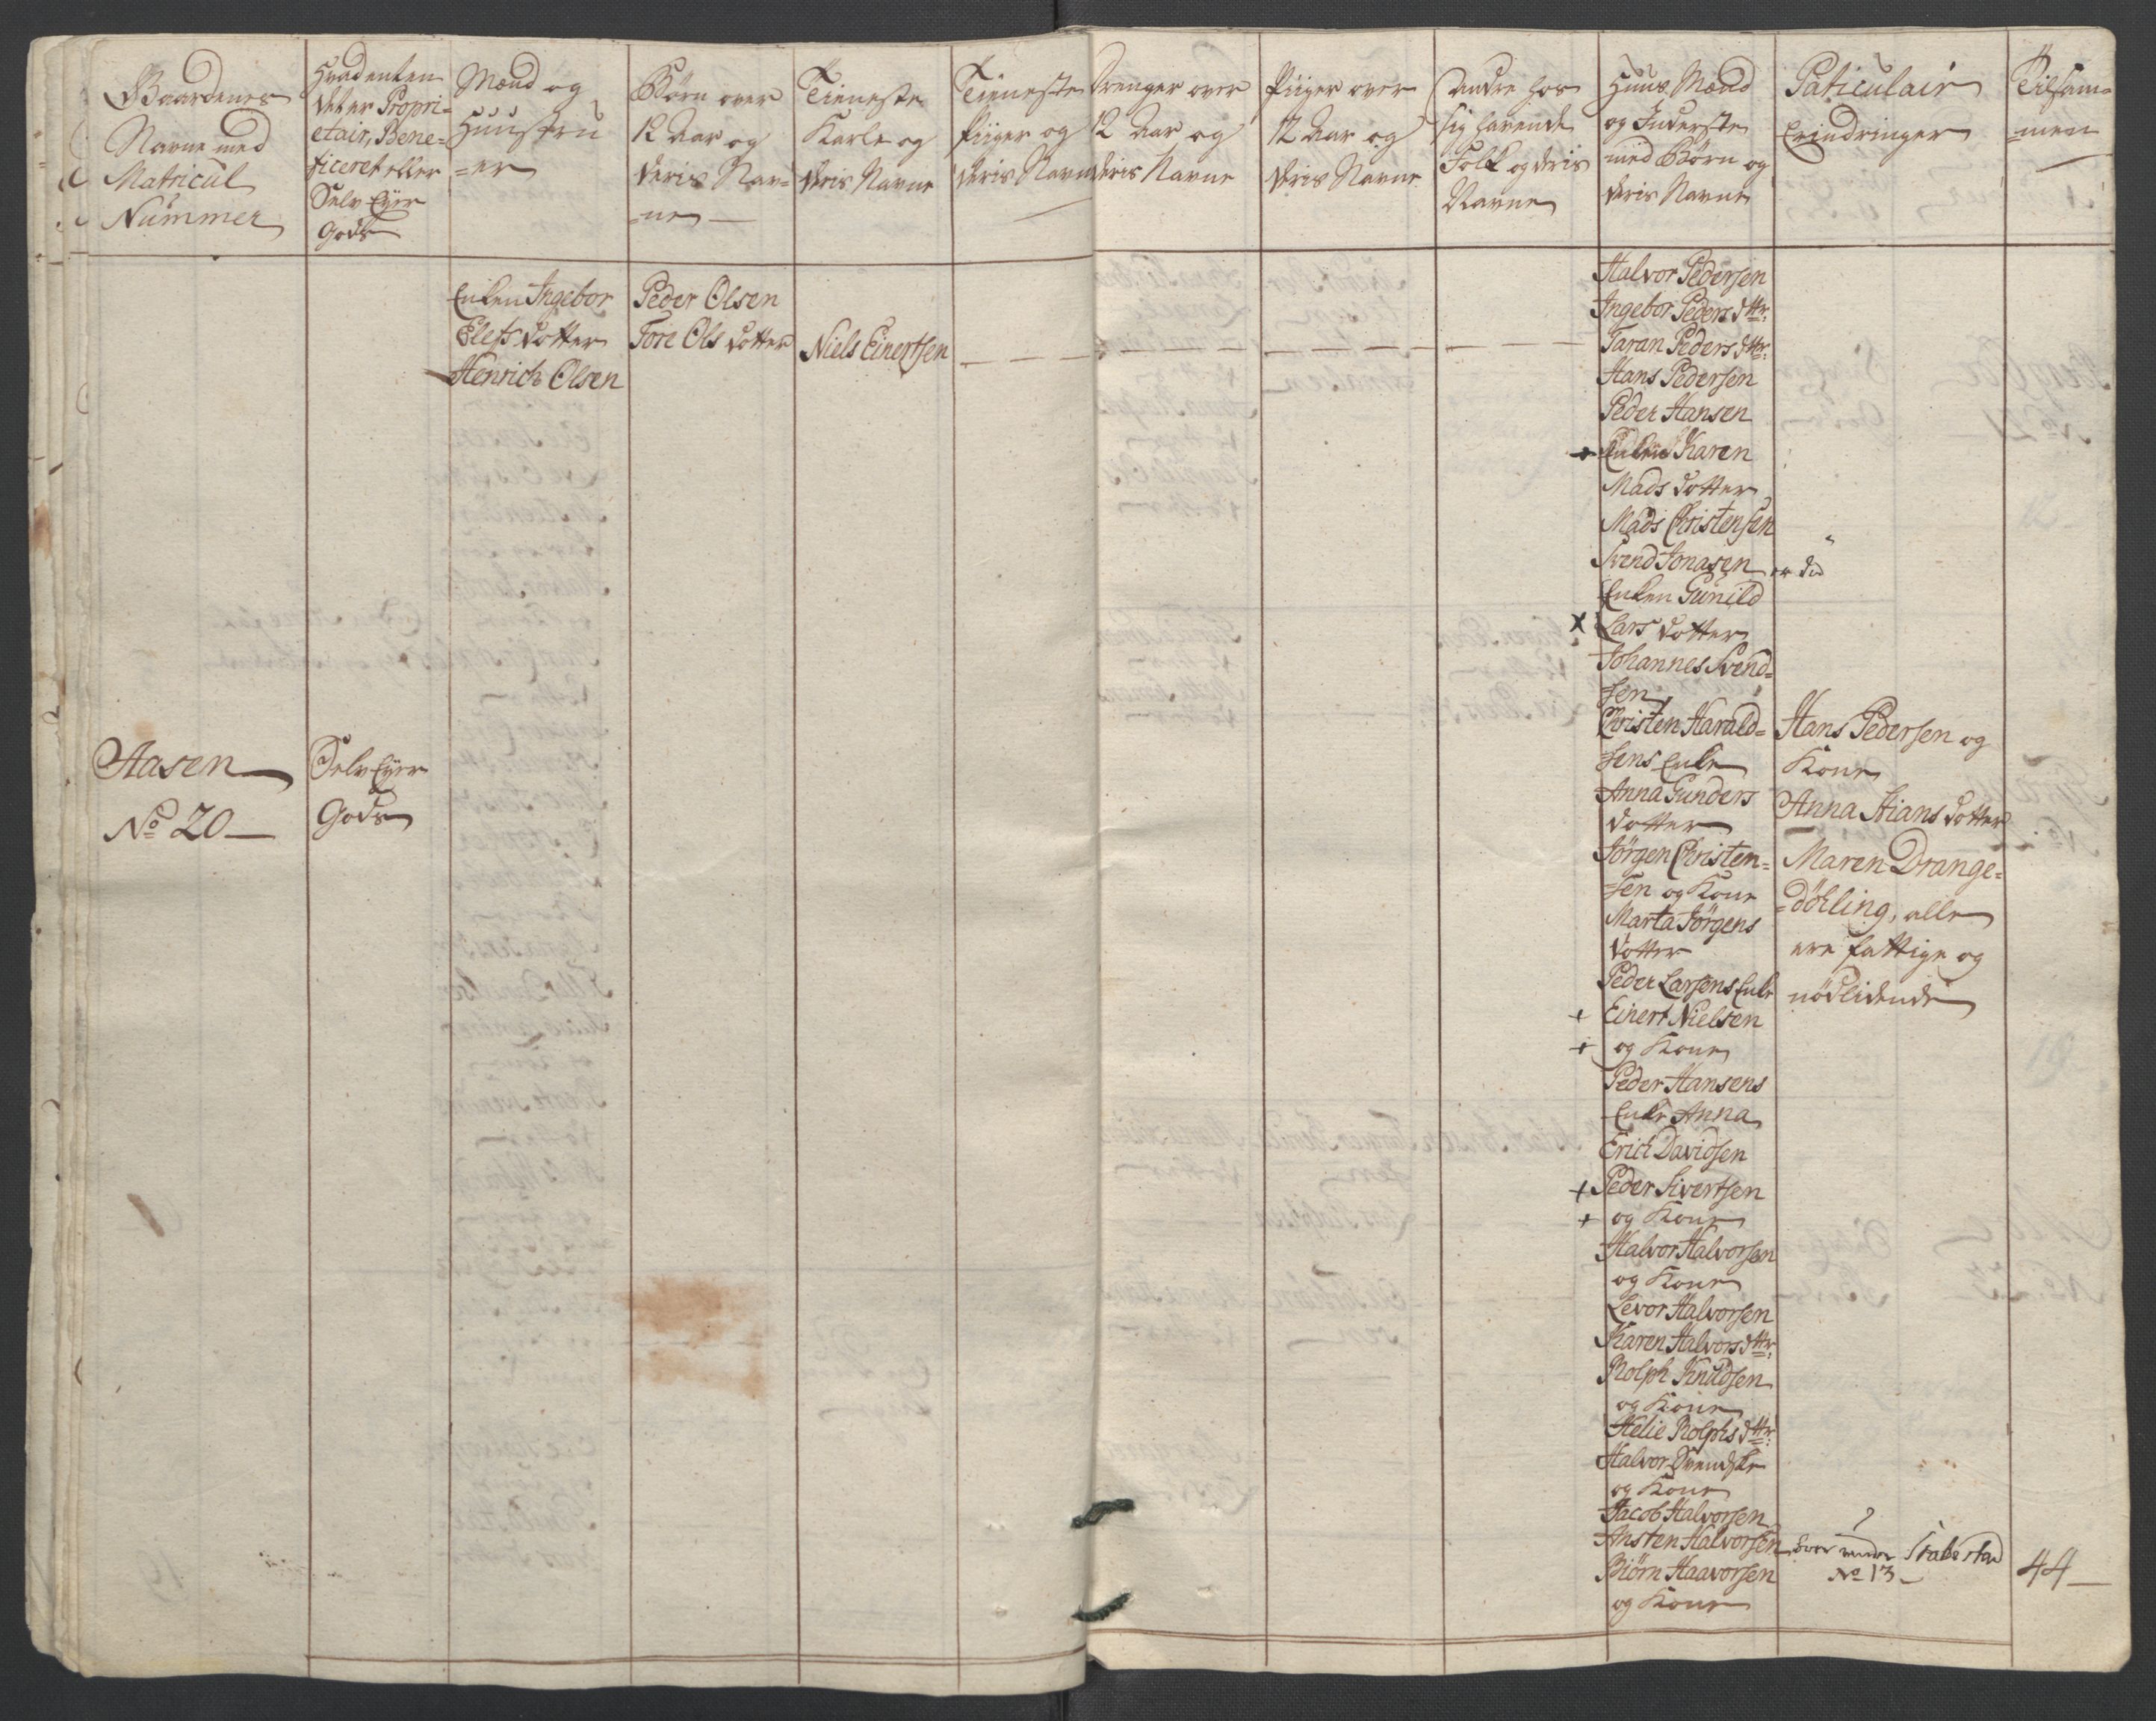 Gaardenes
Navne med
Matricul
Nummer
Hvad enten
det er Propri-
etair, Bene-
ficeret eller
Selv Eyer
Gods
Mænd og
Huustru
=er
Børn over
12 Aar og
deris Nav=
=ne
Tieneste
Karle og
deris Navne
Tieneste
Piiger og
deris Navne
Drenger over
12 Aar og
deris Navne
Piiger over
12 Aar og
deris Navne
Andre hos
sig havende
Folk og deris
Navne
Huus Mænd
og Inderste
med Børn og
deris Navne
Paticulair
Erindringer
Tilsam=
=men
Aasen
No 20
Selv Eyer
Gods
Enken Ingebor
Elefs dotter
Henrich Olsen
Peder Olsen
Tore Ols dotter
Niels Einertsen
Halvor Pedersen
Ingebor Peders dttr:
Taran Peders dttr:
Hans Pedersen
Peder Hansen
+ Enken Karen
Mads dotter
Mads Christensen
Svend Jonasen er död
Enken Gunild
x Lars dotter
Johannes Svend=
sen
Christen Harald=
sens Enke
Anna Gunders
dotter
Jörgen Christen=
=sen og Kone
Marta Jörgens
dotter
Peder Larsens Enke
+ Einert Nielsen
+ og Kone
Peder Hansens
Enke Anna
Erich Davidsen
+ Peder Sivertsen
+ og Kone
Halvor Halvorsen
og Kone
Levor Halvorsen
Karen Halvors dttr:
Rolph Knudsen
og Kone
Helie Rolphs dttr:
Halvor Svendske
og Kone
Jacob Halvorsen
Ansten Halvorsen
Biörn Haavorsen
og Kone
Hans Pedersen og
Kone
Anna Stians dotter
Maren Drange=
=döhling, alle
ere fattige og
nödlidende
?
under
No 13
44